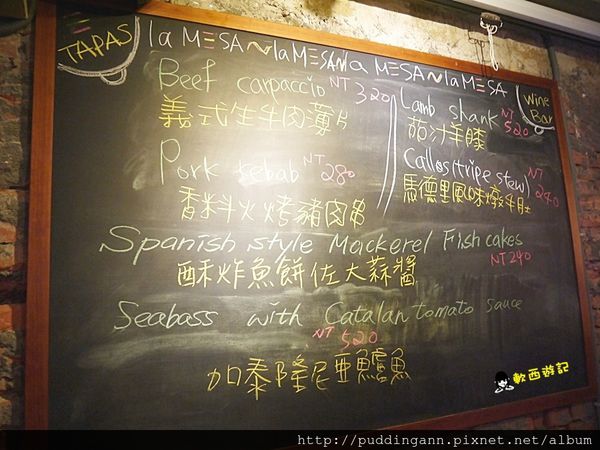 TAPAS
la MESA~la MESA~la MESA~la MESA
Wine Bar
Beef carpaccio NT 320
義式生牛肉薄片
Pork kebab NT 280
香料火烤豬肉串
Lamb shank NT 520
茄汁羊膝
Callos (tripe stew) NT 240
馬德里風味燉牛肚
Spanish style Mackerel Fish cakes
NT 240
酥炸魚餅佐大蒜醬
Seabass with Catalan tomato sauce
NT 520
加泰隆尼亞鱸魚
軟西遊記
http://puddingann.pixnet.net/album